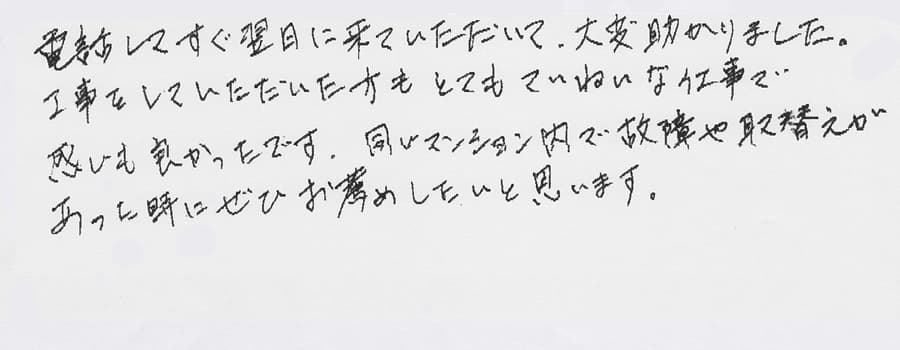 電話してすぐ翌日に来ていただいて、大変助かりました。
工事をしていただいた方もとてもていねいな仕事で
感じも良かったです。同じマンション内で故障や取替えが
あった時にぜひお薦めしたいと思います。